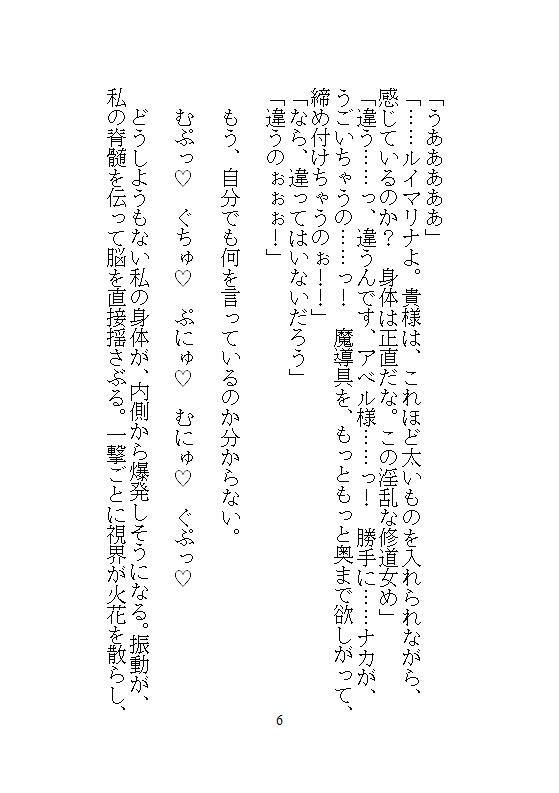 「うあああああ」
「……ルイマリナよ。貴様は、これほど太いものを入れられながら、
感じているのか？　身体は正直だな。この淫乱な修道女め」
「違う……っ、違うんです、アベル様……っ！　勝手に……ナカが、
うごいちゃうの……っ！　魔導具を、もっともっと奥まで欲しがって、
締め付けちゃうのぉ！！」
「なら、違ってはいないだろう」
「違うのぉぉぉ！」
もう、自分でも何を言っているのか分からない。
むぷっ♡　ぐちゅ♡　ぷにゅ♡　むにゅ♡　ぐぷっ♡
どうしようもない私の身体が、内側から爆発しそうになる。振動が、
私の脊髄を伝って脳を直接揺さぶる。一撃ごとに視界が火花を散らし、
6